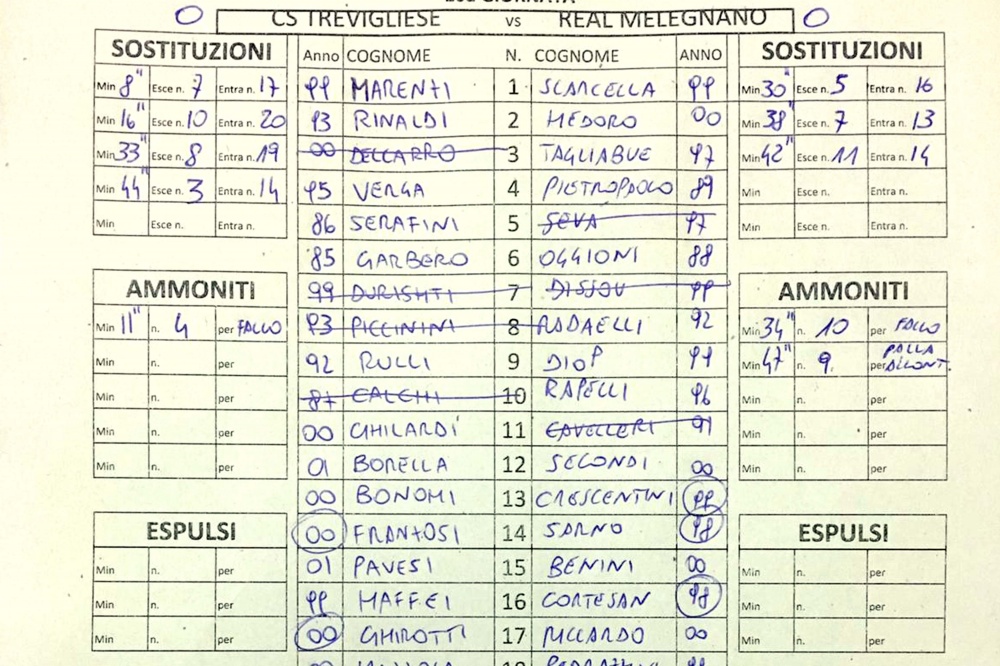 O CS TREVIGLIESE vs REAL MELEGNANO O
SOSTITUZIONI Anno COGNOME N. COGNOME ANNO SOSTITUZIONI
Min 8" Esce n. 7 Entra n. 17 99 MARENTI 1 SCARCELLA 99 Min 30" Esce n. 5 Entra n. 16
Min 16" Esce n. 10 Entra n. 20 93 RINALDI 2 MEDORO 00 Min 38" Esce n. 7 Entra n. 13
Min 33" Esce n. 8 Entra n. 19 00 DELCARRO 3 TAGLIABUE 97 Min 42" Esce n. 11 Entra n. 14
Min 44" Esce n. 3 Entra n. 14 95 VERGA 4 PIETROPAOLO 89 Min Esce n. Entra n.
Min Esce n. Entra n. 86 SERAFINI 5 SEVA 97 Min Esce n. Entra n.
85 GARBERO 6 OGGIONI 88
AMMONITI 99 DURISHTI 7 99 AMMONITI
Min 11" n. 4 per FALLO 93 PICCININI 8 RADAELLI 92 Min 34" n. 10 per FALLO
Min n. per 92 RULLI 9 DIOP 99 Min 47" n. 9 per PALLA
Min n. per 87 CALCHI 10 RAPELLI 96 Min n. per
Min n. per 00 GHILARDI 11 CAVELLERI 91 Min n. per
Min n. per 01 BORELLA 12 SECONDI 00 Min n. per
00 BONOMI 13 CRESCENTINI 99
ESPULSI 00 FRANTOSI 14 SARNO 98 ESPULSI
Min n. per 01 PAVESI 15 BENINI 00 Min n. per
Min n. per 99 MAFFEI 16 CORTESAN 98 Min n. per
Min n. per 00 GHIROTTI 17 RICCARDO 00 Min n. per